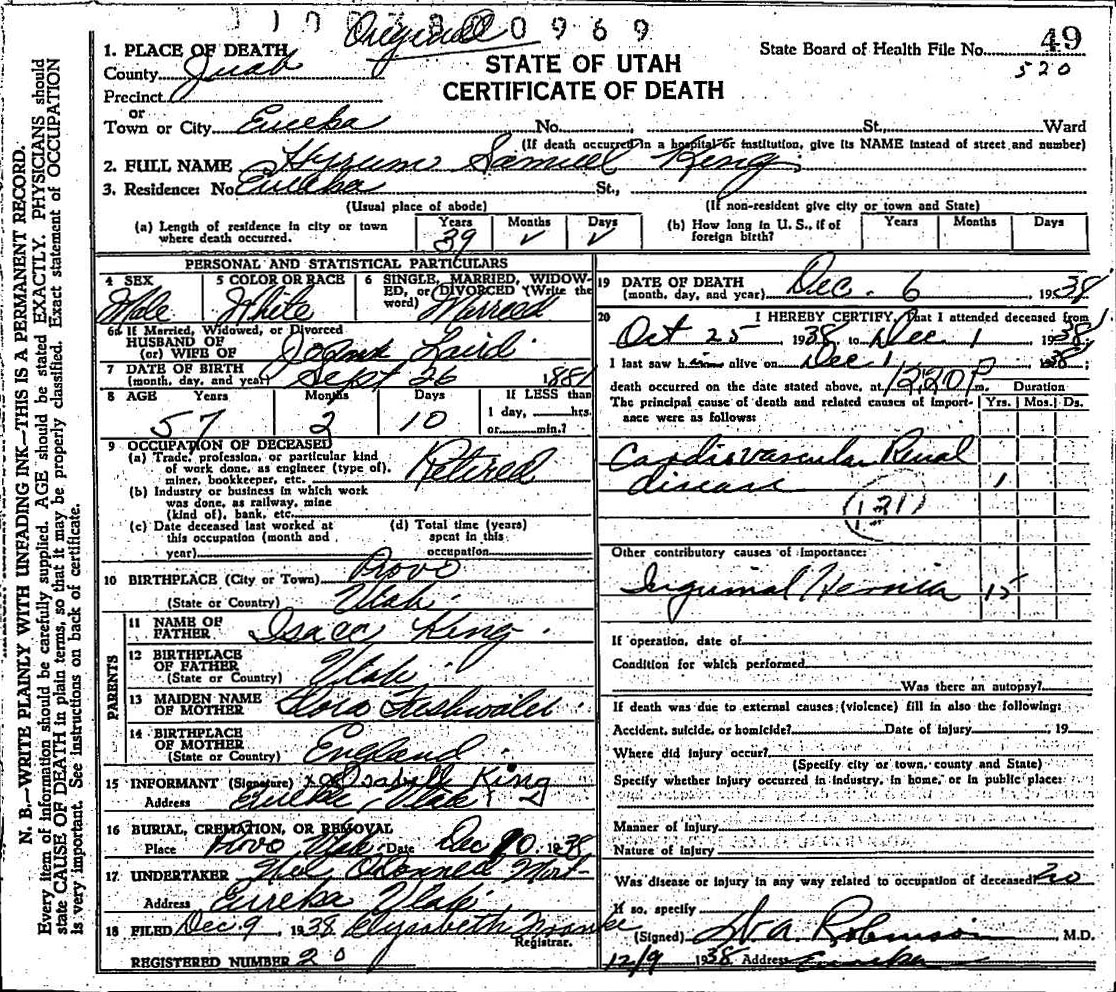 Original 0969
1. PLACE OF DEATH
County Juab
State Board of Health File No. 49
520
STATE OF UTAH
CERTIFICATE OF DEATH
Precinct
or
Town or City Eureka No. St., Ward
(If death occurred in a hospital or institution, give its NAME instead of street and number)
2. FULL NAME Hyrum Samuel King
3. Residence: No. Eureka St.,
(Usual place of abode) (If non-resident give city or town and State)
(a) Length of residence in city or town where death occurred. Years 39 Months ✓ Days ✓
(b) How long in U. S., if of foreign birth? Years Months Days
PERSONAL AND STATISTICAL PARTICULARS
4 SEX Male
5 COLOR OR RACE White
6 SINGLE, MARRIED, WIDOWED, or DIVORCED (Write the word) Married
6a If Married, Widowed, or Divorced
HUSBAND OF
(or) WIFE OF Laird
7 DATE OF BIRTH
(month, day, and year) Sept 26 1881
8 AGE Years 57 Months 2 Days 10 If LESS than
1 day, hrs.
or min.?
9 OCCUPATION OF DECEASED
(a) Trade, profession, or particular kind
of work done, as engineer (type of),
miner, bookkeeper, etc. Retired
(b) Industry or business in which work
was done, as railway, mine
(kind of), bank, etc.
(c) Date deceased last worked at
this occupation (month and
year)
(d) Total time (years)
spent in this
occupation
10 BIRTHPLACE (City or Town) Provo
(State or Country) Utah
PARENTS
11 NAME OF
FATHER Isacc King
12 BIRTHPLACE
OF FATHER
(State or Country) Utah
13 MAIDEN NAME
OF MOTHER Flora Freshwater
14 BIRTHPLACE
OF MOTHER
(State or Country) England
15 INFORMANT (Signature) King
Address Eureka, Utah
16 BURIAL, CREMATION, OR REMOVAL
Place Provo Utah Date Dec 10 1938
17 UNDERTAKER O'Donnell Mort-
Address Eureka Utah
18 FILED Dec 9, 1938
Registrar.
REGISTERED NUMBER 20
19 DATE OF DEATH
(month, day, and year) Dec. 6, 1938
20 I HEREBY CERTIFY, That I attended deceased from
Oct 25 1938, to Dec 1, 1938
I last saw him alive on Dec 1, 1938;
death occurred on the date stated above, at 1220 P m. Duration
The principal cause of death and related causes of importance were as follows: Yrs. Mos. Ds.
Cardiovascular Renal
disease 1
(131)
Other contributory causes of importance:
Inguinal Hernia 15
If operation, date of
Condition for which performed
Was there an autopsy?
If death was due to external causes (violence) fill in also the following:
Accident, suicide, or homicide? Date of injury , 19
Where did injury occur?
(Specify city or town, county and State)
Specify whether injury occurred in industry, in home, or in public place:
Manner of injury
Nature of injury
Was disease or injury in any way related to occupation of deceased? no
If so, specify
(Signed) Robinson M.D.
12/9 1938 Address Eureka
N. B.—WRITE PLAINLY WITH UNFADING INK—THIS IS A PERMANENT RECORD.
Every item of information should be carefully supplied. AGE should be stated EXACTLY. PHYSICIANS should
state CAUSE OF DEATH in plain terms, so that it may be properly classified. Exact statement of OCCUPATION
is very important. See instructions on back of certificate.